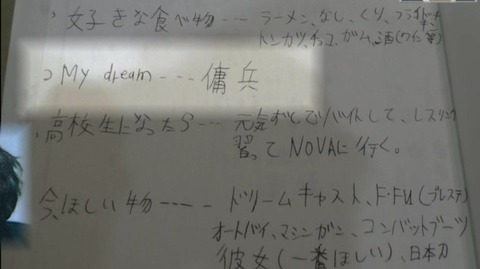 女子きな食べ物---ラーメン、なし、くり、フライドチキン
トンカツ、チョコ、ガム、酒(ワイン等)
My dream---傭兵
高校生になったら---元気ずしでバイトして、レスリング
習ってNOVAに行く。
今、ほしい物----ドリームキャスト、F・FⅧ(プレステ)
オートバイ、マシンガン、コンバットブーツ
彼女(一番ほしい)、日本刀